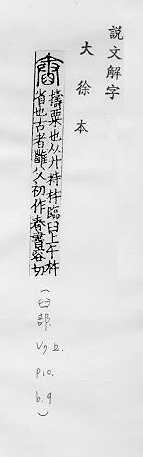 説文解字
大徐本
舂
擣粟也从廾持杵臨臼上午杵
省也古者雝父初作舂書容切
(臼部
V7上
P10.
b.9
)